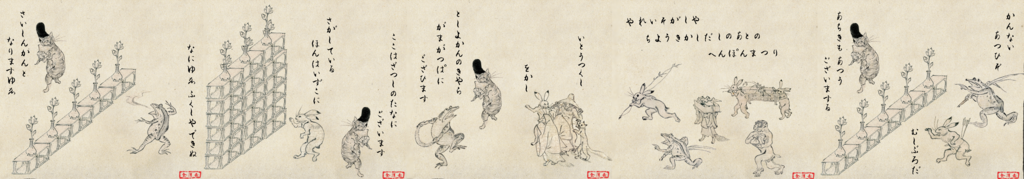 なにゆゑ ふくしやできぬ
さいしんかんと
なりますゆゑ
ここはざつしのたなに
ございます
さがしている
ほんはいずこに
いとうつくし
をかし
としよかんのきやら
がまがつぱに
ござひます
やれいそがしや
ちようきかしだしのあとの
へんぽんまつり
かんない
あつひぞ
むしぶろだ
あちきもあつう
ございまする